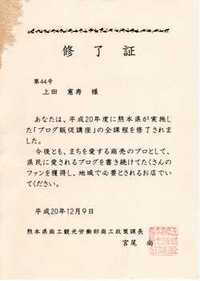 修了証
第44号
上田 憲寿 様
あなたは、平成20年度に熊本県が実施し
た「ブログ販促講座」の全課程を修了されま
した。
今後とも、まちを愛する商売のプロとして、
県民に愛されるブログを書き続けてたくさんの
ファンを獲得し、地域で必要とされるお店でい
てください。
平成20年12月9日
熊本県商工観光労働部商工政策課長
宮尾 尚